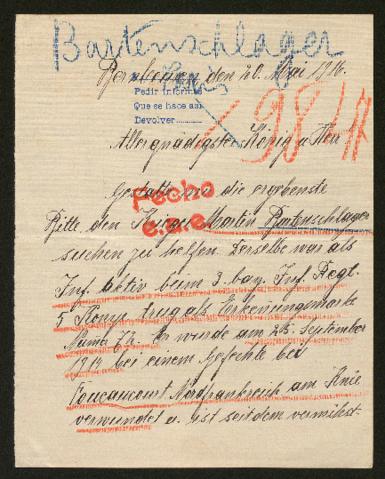 Bartenschlager
den 20. Mai 1916.
Pedir informes
Que se hace así
Devolver
198/17
Allergnädigster König u. Herr!
Gestatte mir die ergebenste
Fecho
Bitte, den Krieger Martin Bartenschlager
e.a.e.
suchen zu helfen. Derselbe war als
Inf. aktiv beim 3. bay. Inf. Regt.
5. Komp. Erkennungsmarke
Er wurde am 25. September
1914 bei einem Gefechte bei
Foucaucourt Nordfrankreich am Knie
verwundet u. ist seitdem vermißt.